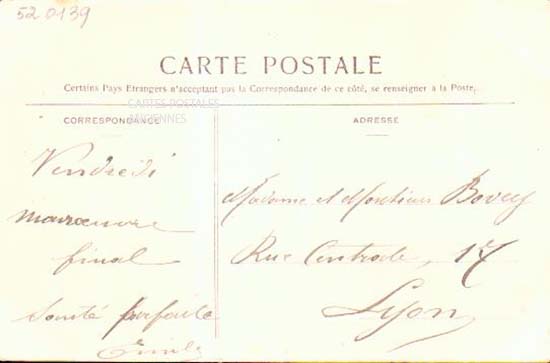 520139
CARTE POSTALE
Certains Pays Etrangers n'acceptant pas la Correspondance de ce côté, se renseigner à la Poste.
CARTES POSTALES
ANCIENNES
CORRESPONDANCE
Vendredi
final
Santé parfaite
Emily
ADRESSE
Madame et Monsieur Bovey
Rue Centrale, 17
Lyon